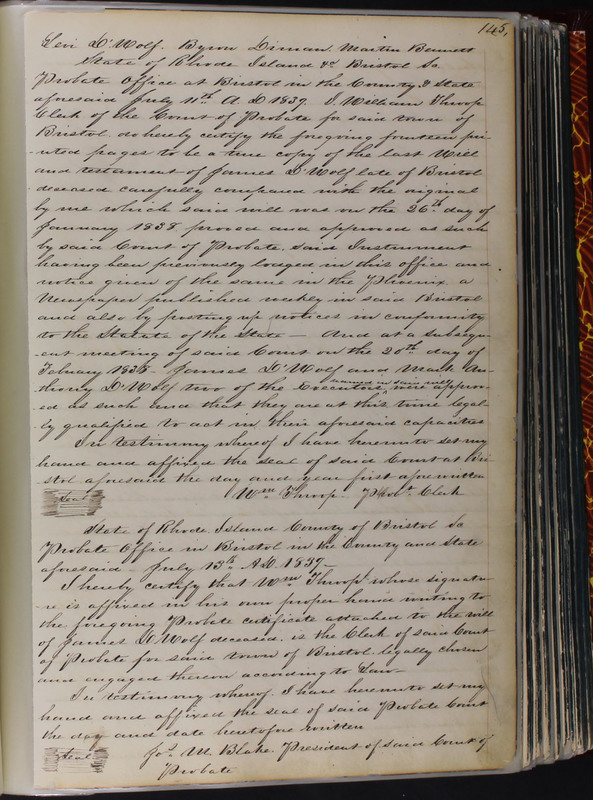 145,
Levi D'Wolf. Byron Diman Martin Bennett
State of Rhode Island &c Bristol Sc
Probate Office at Bristol in the County & State
aforesaid July 11th A D 1839. I William Throop
Clerk of the Court of Probate for said town of
Bristol. do hereby certify the foregoing fourteen pri-
nted pages to be a true copy of the last Will
and testament of James D'Wolf late of Bristol
deceased carefully compared with the original
by me which said will was on the 26th day of
January 1838. proved and approved as such
by said Court of Probate. said Instrument
having been previously lodged in this office and
notice given of the same in the Phoenix a
Newspaper published weekly in said Bristol
and also by posting up notices in conformity
to the Statute of the State — And at a subsequ-
ent meeting of said Court on the 20th day of
February 1838 – James D'Wolf and Mark An-
thony D'Wolf two of the Executors named in said will were approv-
ed as such and that they are at this time legal-
ly qualified to act in their aforesaid capacities
In testimony whereof I have hereunto set my
hand and affixed the seal of said Court at Bri-
stol aforesaid the day and year first aforewritten
Seal
Wm Throop. Probt. Clerk
State of Rhode Island County of Bristol Sc
Probate Office in Bristol in the County and State
aforesaid – July 13th A D. 1839 –
I hereby certify that Wm Throop whose signatu-
re is affixed in his own proper hand writing to
the foregoing Probate certificate attached to the will
of James D'Wolf deceased. is the Clerk of said Court
of Probate for said town of Bristol legally chosen
and engaged thereon according to Law –
In testimony whereof. I have hereunto set my
hand and affixed the seal of said Probate Court
the day and date heretofore written
Seal
Jos. M. Blake. President of said Court of
Probate